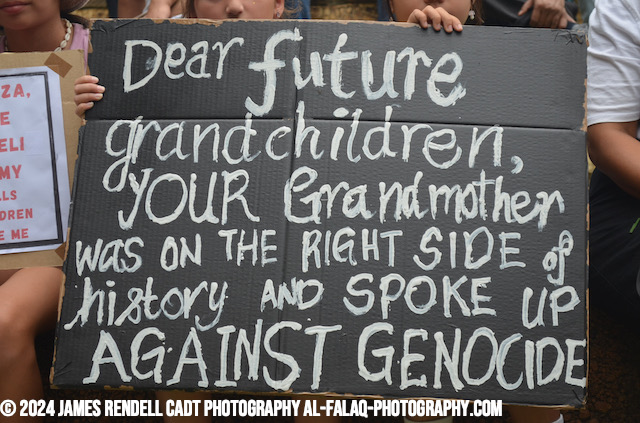 Dear future
grandchildren,
YOUR Grandmother
WAS ON THE RIGHT SIDE of
history AND SPOKE UP
AGAINST GENOCIDE
ZA,
E
ELI
MY
LS
DREN
E ME
© 2024 JAMES RENDELL CADT PHOTOGRAPHY AL-FALAQ-PHOTOGRAPHY.COM